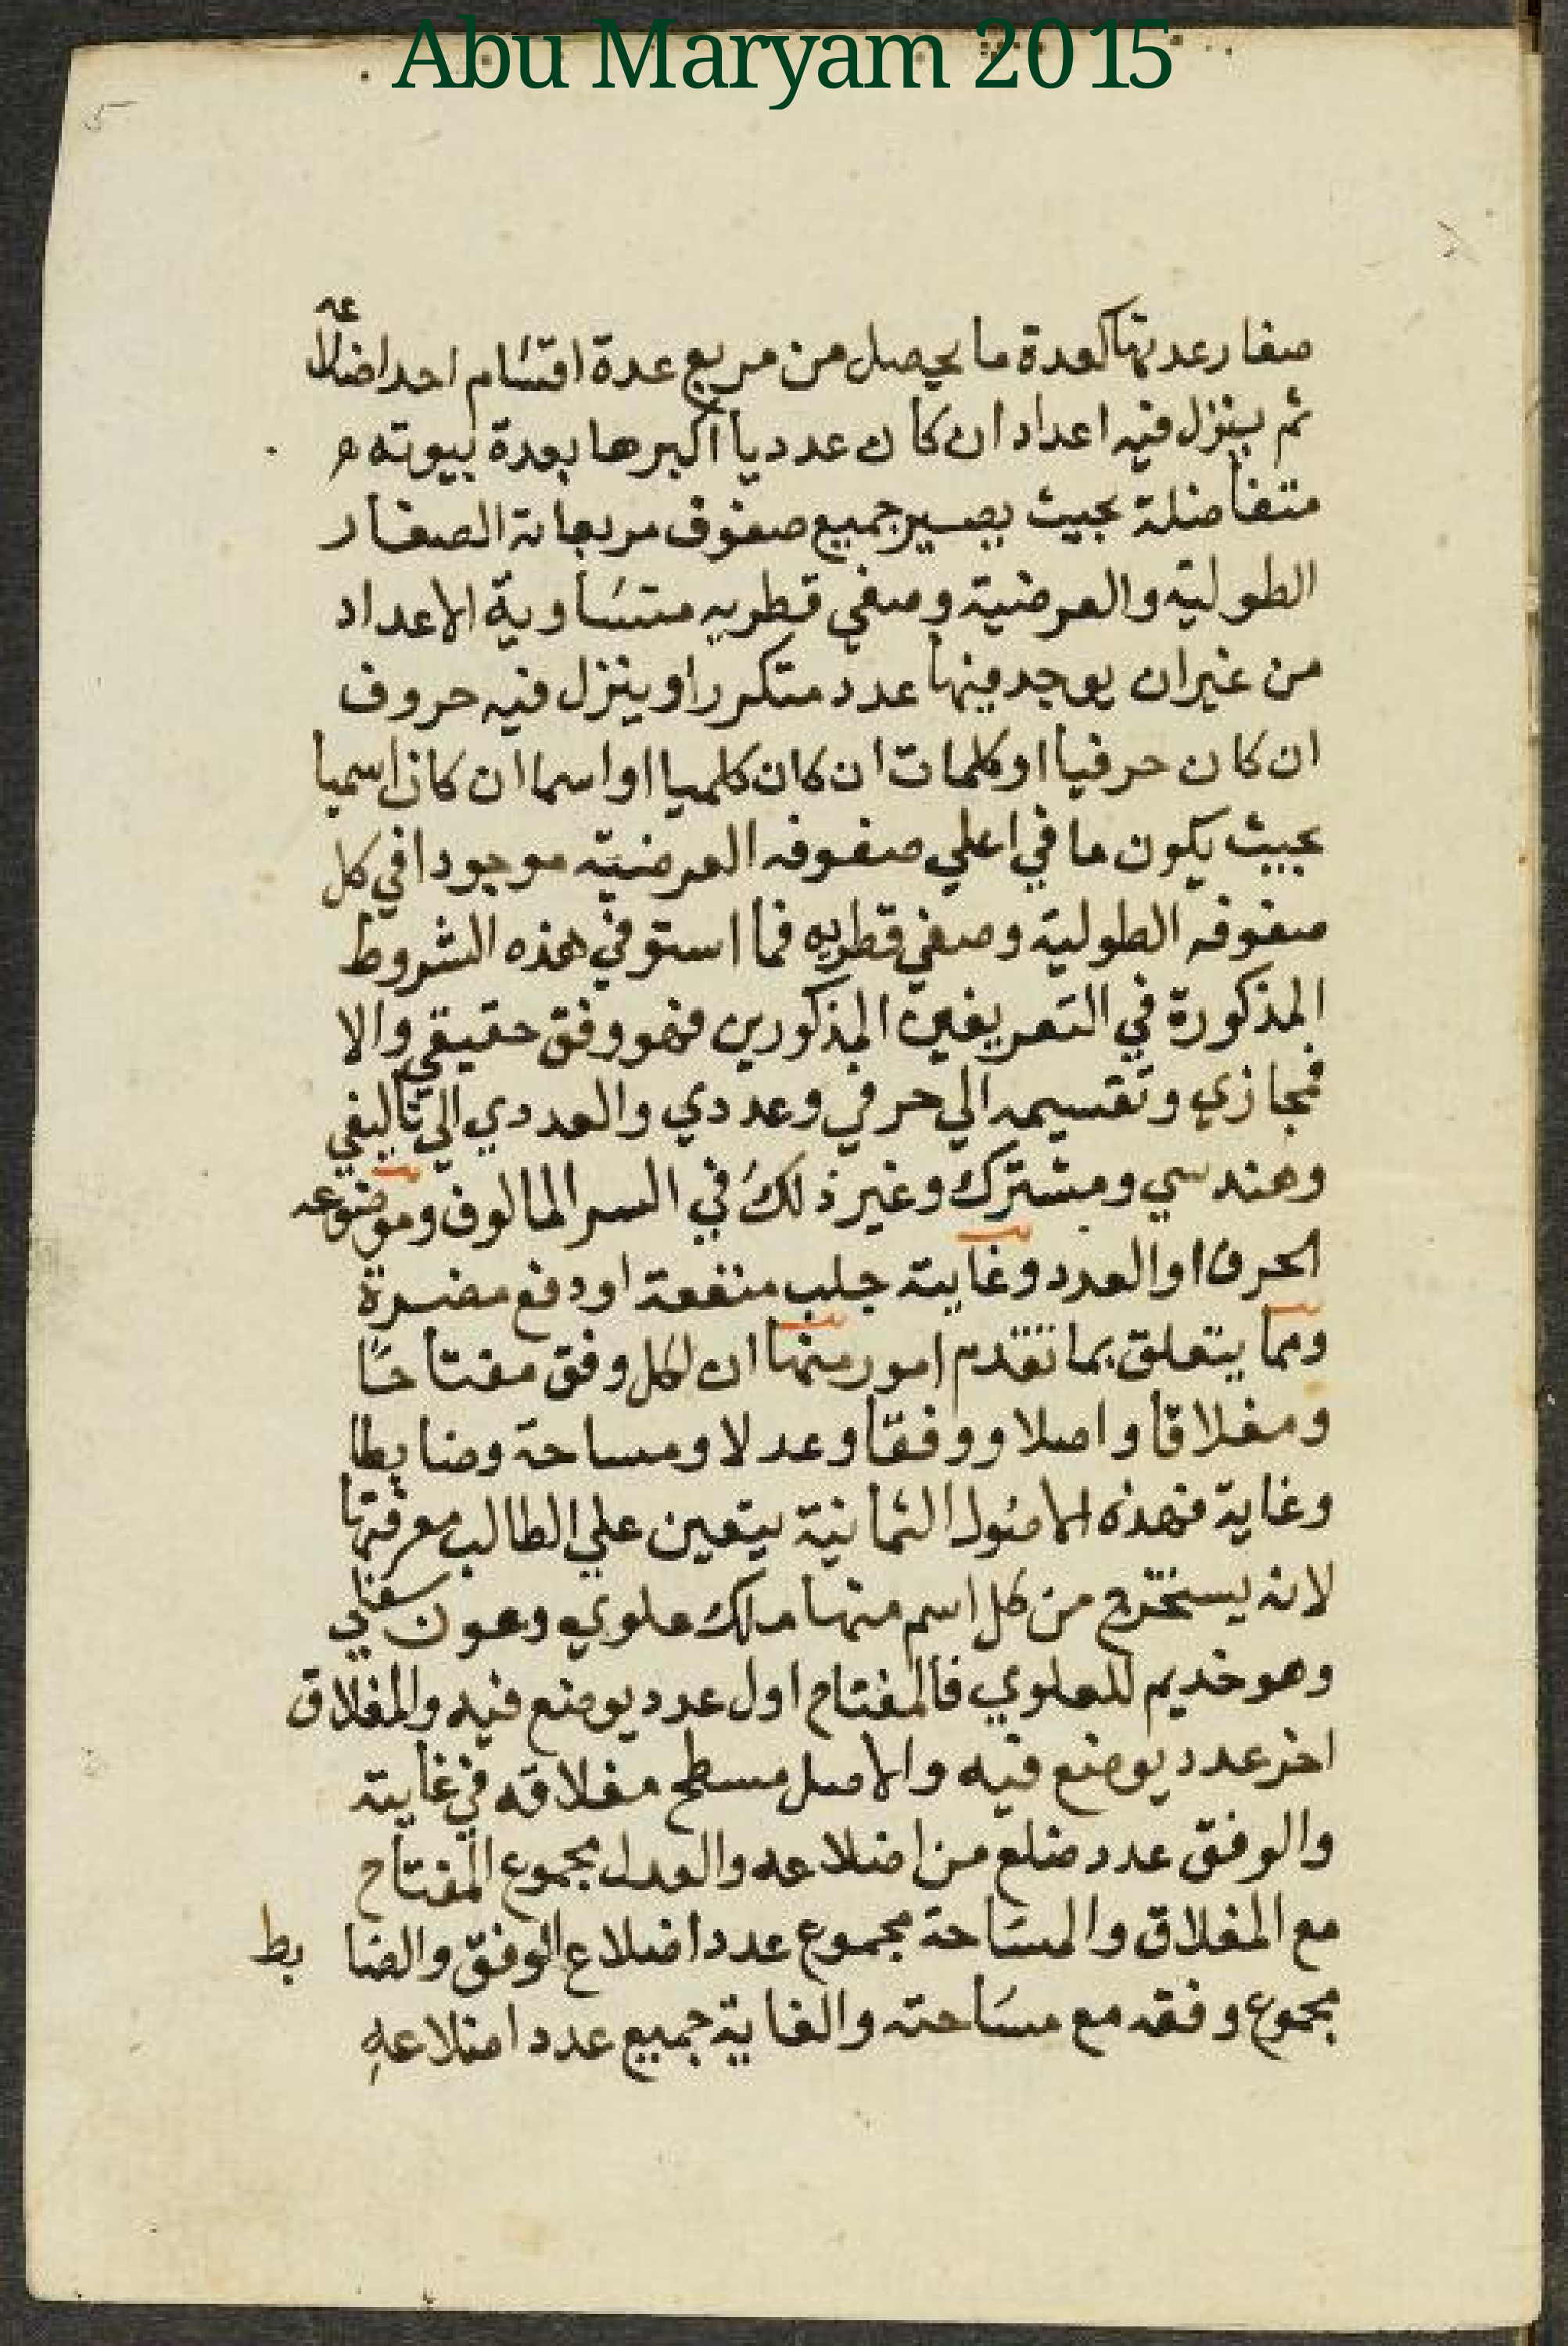 Abu Maryam 2015
صغار عدتها كعدة ما يحصل من مربع عدة اقسام احد اضلاعه
ثم ينزل فيه اعداد ان كان عدديا اكبرها بعدة بيوته
متفاضلة بحيث يصير جميع صفوف مربعاته الصغار
الطولية والعرضية وصفي قطريه متساوية الاعداد
من غير ان يوجد فيها عدد متكرر او ينزل فيه حروف
ان كان حرفيا او كلمات ان كان كلميا او اسما ان كان اسميا
بحيث يكون ما في اعلي صفوفه العرضية موجودا في كل
صفوفه الطولية وصفي قطريه فما استوفي هذه الشروط
المذكورة في التعريفين المذكورين فهو وفق حقيقي والا
فمجازي وتقسيمه الي حرفي وعددي والعددي الي تاليفي
وهندسي ومشترك وغير ذلك في السر المالوف وموضوعه
الحرف او العدد وغايته جلب منفعة او دفع مضرة
ومما يتعلق بما تقدم امور منها ان لكل وفق مفتاحًا
ومغلاقا واصلا ووفقا وعدلا ومساحة وضابطا
وغاية فهذه الاصول الثمانية يتعين علي الطالب معرفتها
لانه يستخرج من كل اسم منها ملك علوي وعون سفلي
وهو خديم للعلوي فالمفتاح اول عدد يوضع فيه والمغلاق
اخر عدد يوضع فيه والاصل مسطح مغلاقه في غايته
والوفق عدد ضلع من اضلاعه والعدل مجموع المفتاح
مع المغلاق والمساحة مجموع عدد اضلاع الوفق والضابط
مجموع وفقه مع مساحته والغاية جميع عدد اضلاعه